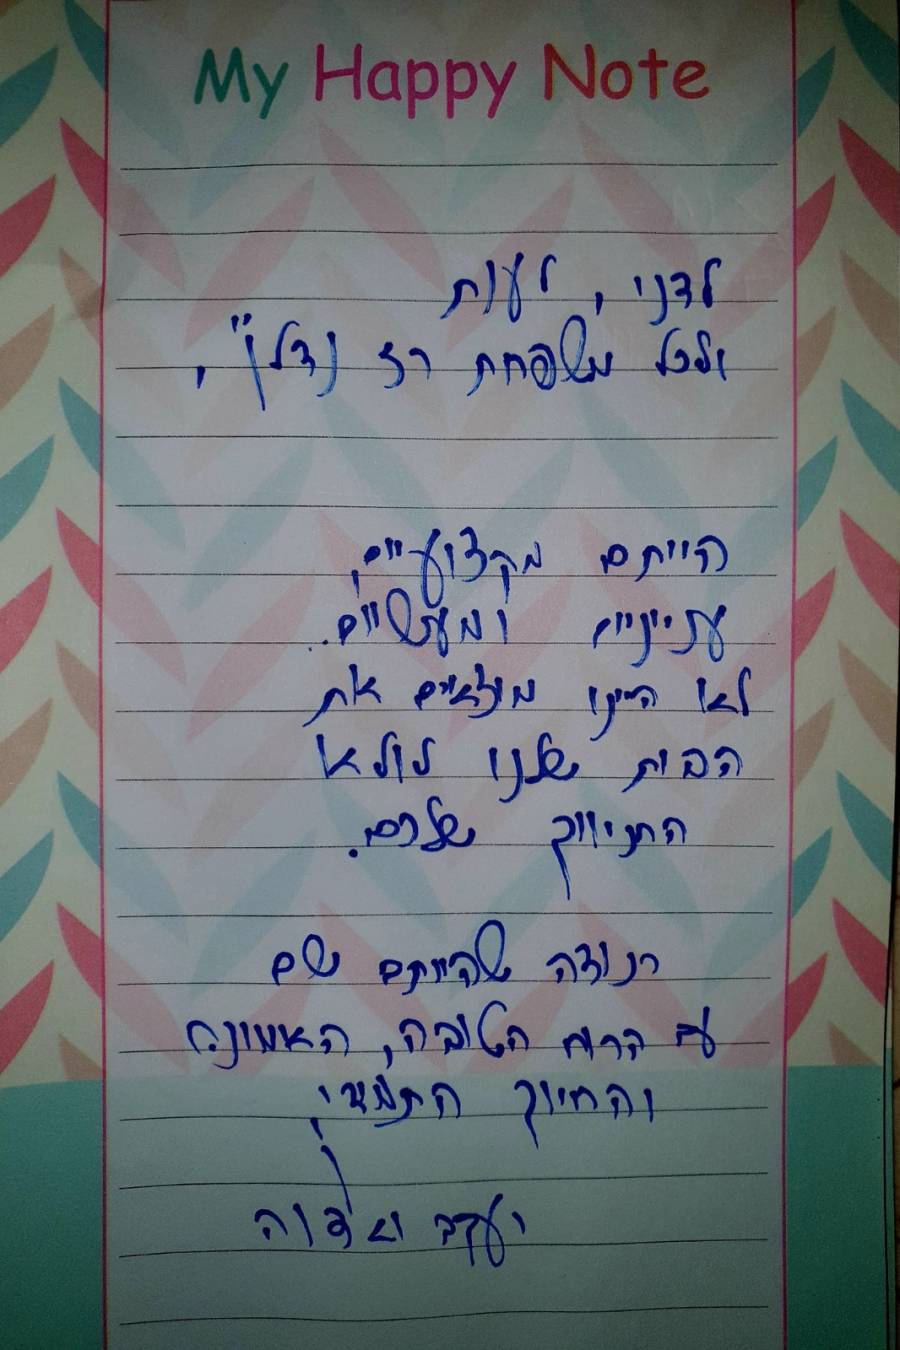 My Happy Note
לדני, לעות
ולכל משפחת רז נדלן",
הייתם מקצועיים,
ענייניים ומעשיים.
לא היינו מוצאים את
הבית שלנו לולא
התיווך שלכם.
תודה שהייתם שם
עם הרוח הטובה, האמונה
והחיוך התמידי,
יעקב